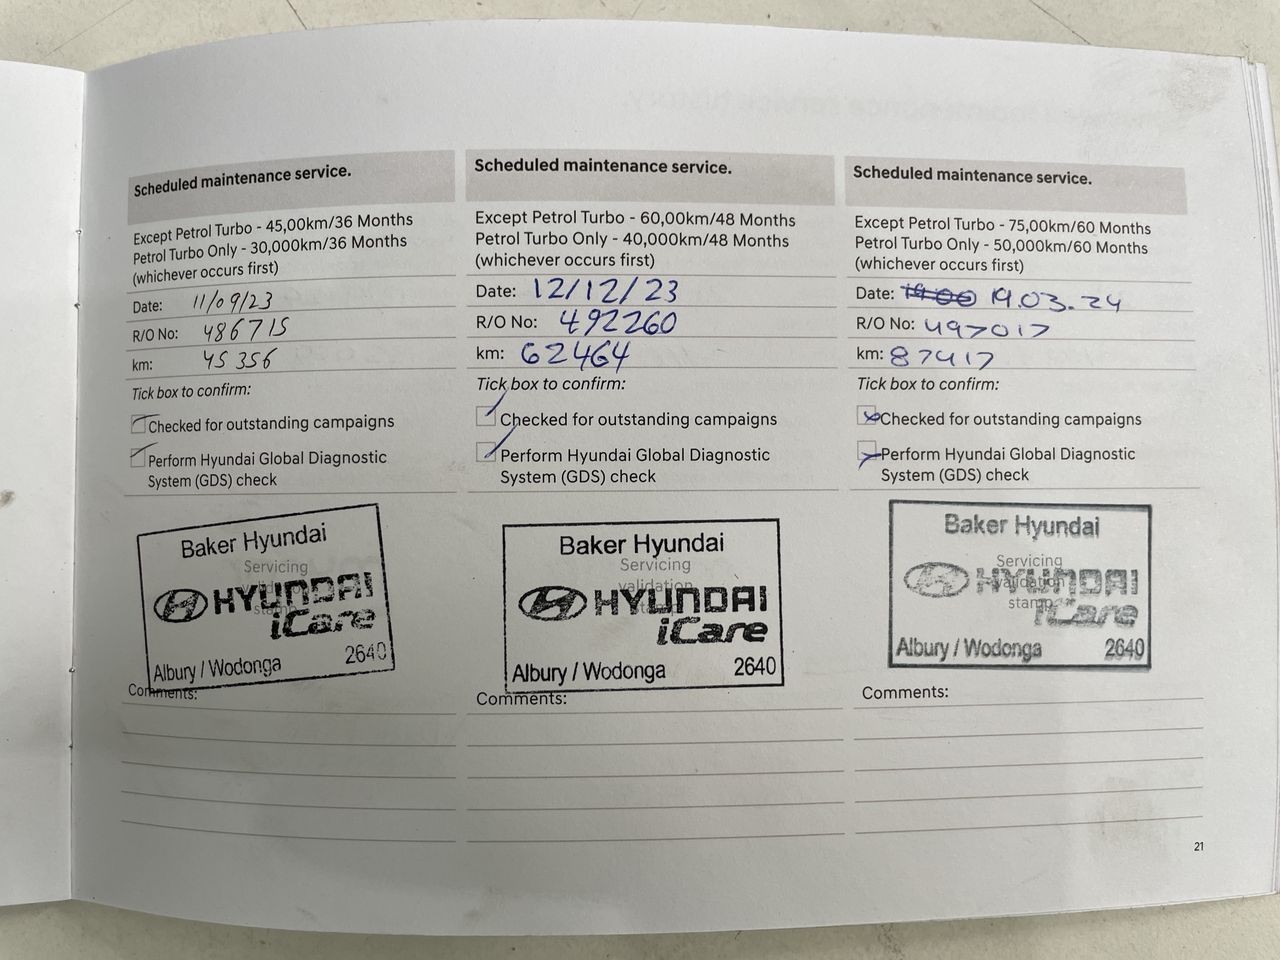 Scheduled maintenance service.
Except Petrol Turbo - 45,00km/36 Months
Petrol Turbo Only - 30,000km/36 Months
(whichever occurs first)
Date: 11/09/23
R/O No: 486715
km: 45 356
Tick box to confirm:
Checked for outstanding campaigns
Perform Hyundai Global Diagnostic
System (GDS) check
Baker Hyundai
Servicing
validation
stamp
HYUNDAI
iCare
Albury / Wodonga 2640
Comments:
Scheduled maintenance service.
Except Petrol Turbo - 60,00km/48 Months
Petrol Turbo Only - 40,000km/48 Months
(whichever occurs first)
Date: 12/12/23
R/O No: 492260
km: 62464
Tick box to confirm:
Checked for outstanding campaigns
Perform Hyundai Global Diagnostic
System (GDS) check
Baker Hyundai
Servicing
validation
HYUNDAI
iCare
Albury / Wodonga 2640
Comments:
Scheduled maintenance service.
Except Petrol Turbo - 75,00km/60 Months
Petrol Turbo Only - 50,000km/60 Months
(whichever occurs first)
Date: 19.03.24
R/O No: 497017
km: 87417
Tick box to confirm:
Checked for outstanding campaigns
Perform Hyundai Global Diagnostic
System (GDS) check
Baker Hyundai
Servicing
validation
stamp
HYUNDAI
iCare
Albury / Wodonga 2640
Comments:
21